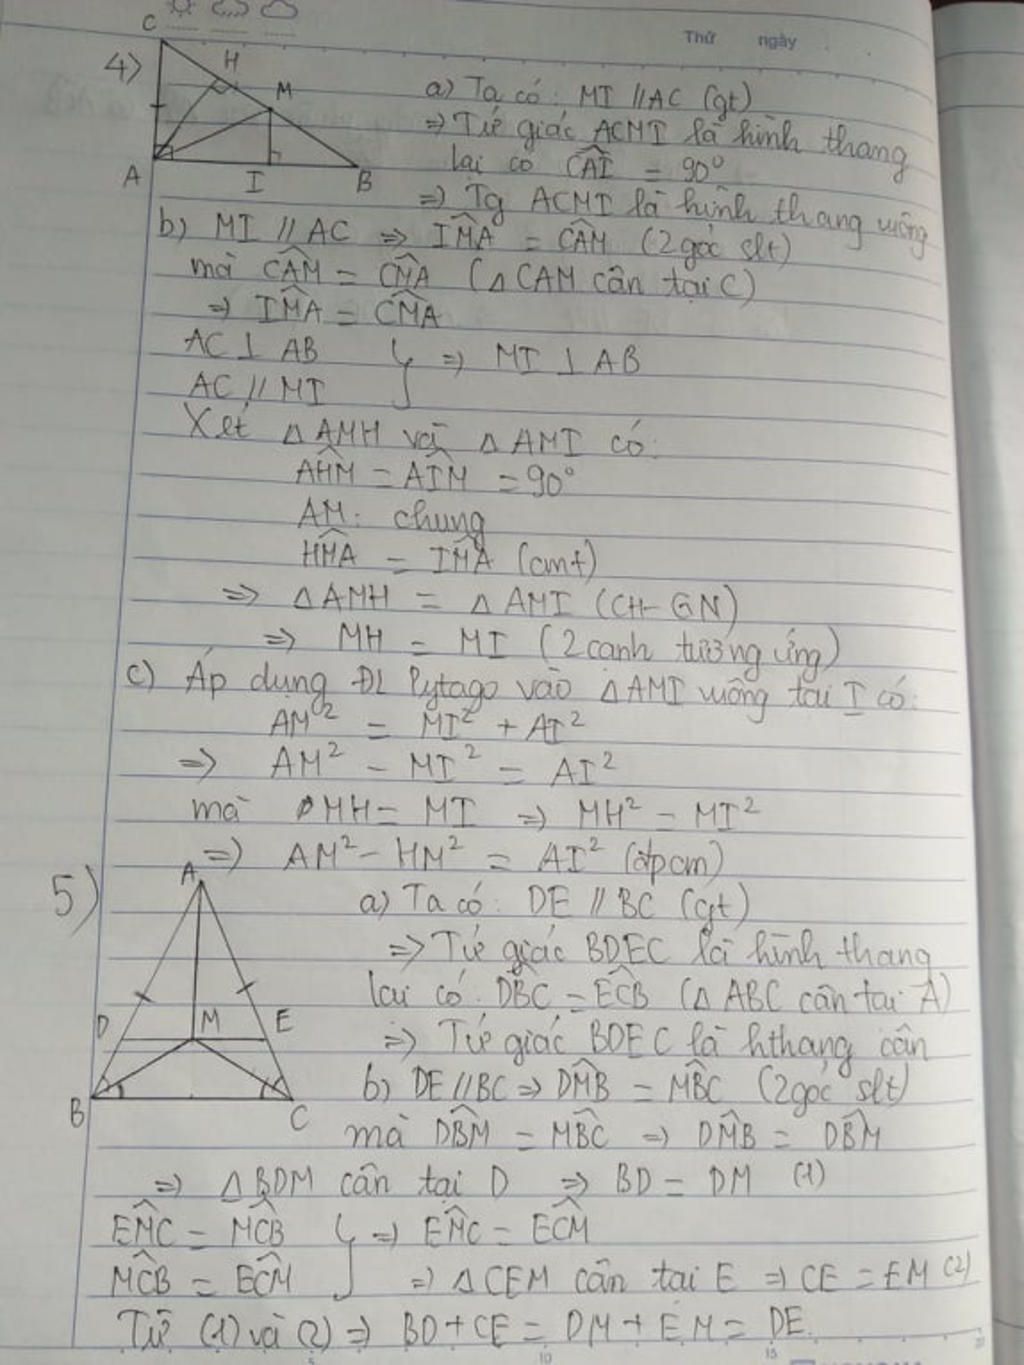 Thứ ngày
C
4)
H
M
A
I
B
a) Ta có: MI // AC (gt)
=> Tứ giác ACMI là hình thang
lại có CÂI = 90°
=> Tg ACMI là hình thang vuông
b) MI // AC => IM̂A = CÂM (2 góc slt)
mà CÂM = CM̂A (△ CAM cân tại C)
=> IM̂A = CM̂A
AC ⊥ AB } => MI ⊥ AB
AC // MI
Xét △ AMH và △ AMI có:
AĤM = AÎM = 90°
AM: chung
HM̂A = IM̂A (cmt)
=> △ AMH = △ AMI (CH-GN)
=> MH = MI (2 cạnh tương ứng)
c) Áp dụng ĐL Pytago vào △AMI vuông tại I có:
AM² = MI² + AI²
=> AM² - MI² = AI²
mà MH = MI => MH² = MI²
=> AM² - HM² = AI² (đpcm)
5)
A
D
M
E
B
C
a) Ta có: DE // BC (gt)
=> Tứ giác BDEC là hình thang
lại có: DB̂C = EĈB (△ ABC cân tại A)
=> Tứ giác BDEC là hthang cân
b) DE // BC => DM̂B = MB̂C (2 góc slt)
mà DB̂M = MB̂C => DM̂B = DB̂M
=> △ BDM cân tại D => BD = DM (1)
EM̂C = MĈB } => EM̂C = EĈM
MĈB = EĈM => △ CEM cân tại E => CE = EM (2)
Từ (1) và (2) => BD + CE = DM + EM = DE
5 10 15